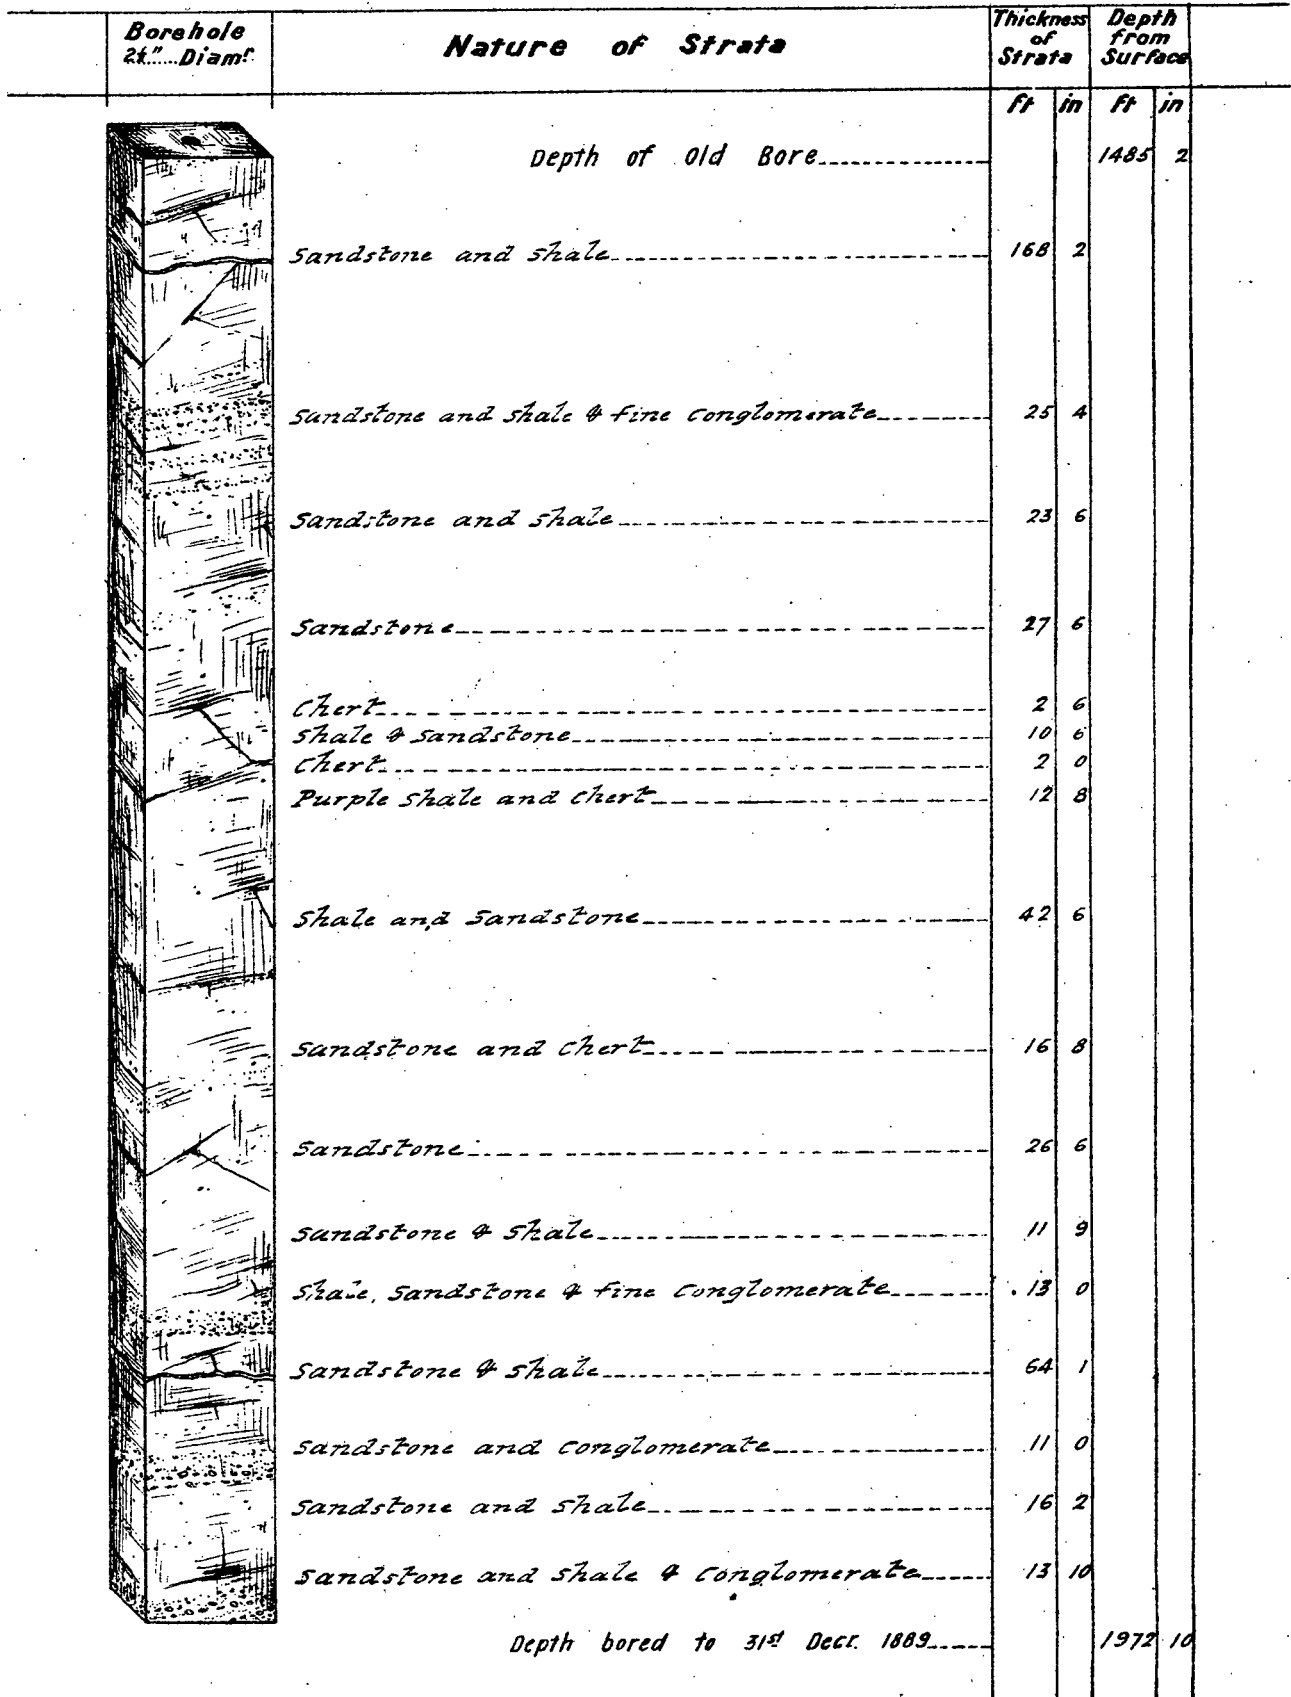 Borehole
2⅛" Diamr.
Nature of Strata
Thickness of Strata
Depth from Surface
ft in ft in
Depth of Old Bore 1485 2
Sandstone and shale 168 2
Sandstone and shale & fine conglomerate 25 4
Sandstone and shale 23 6
Sandstone 27 6
Chert 2 6
Shale & sandstone 10 6
Chert 2 0
Purple shale and chert 12 8
Shale and sandstone 42 6
Sandstone and chert 16 8
Sandstone 26 6
Sandstone & shale 11 9
Shale, sandstone & fine conglomerate 13 0
Sandstone & shale 64 1
Sandstone and conglomerate 11 0
Sandstone and shale 16 2
Sandstone and shale & conglomerate 13 10
Depth bored to 31st Decr. 1889 1972 10